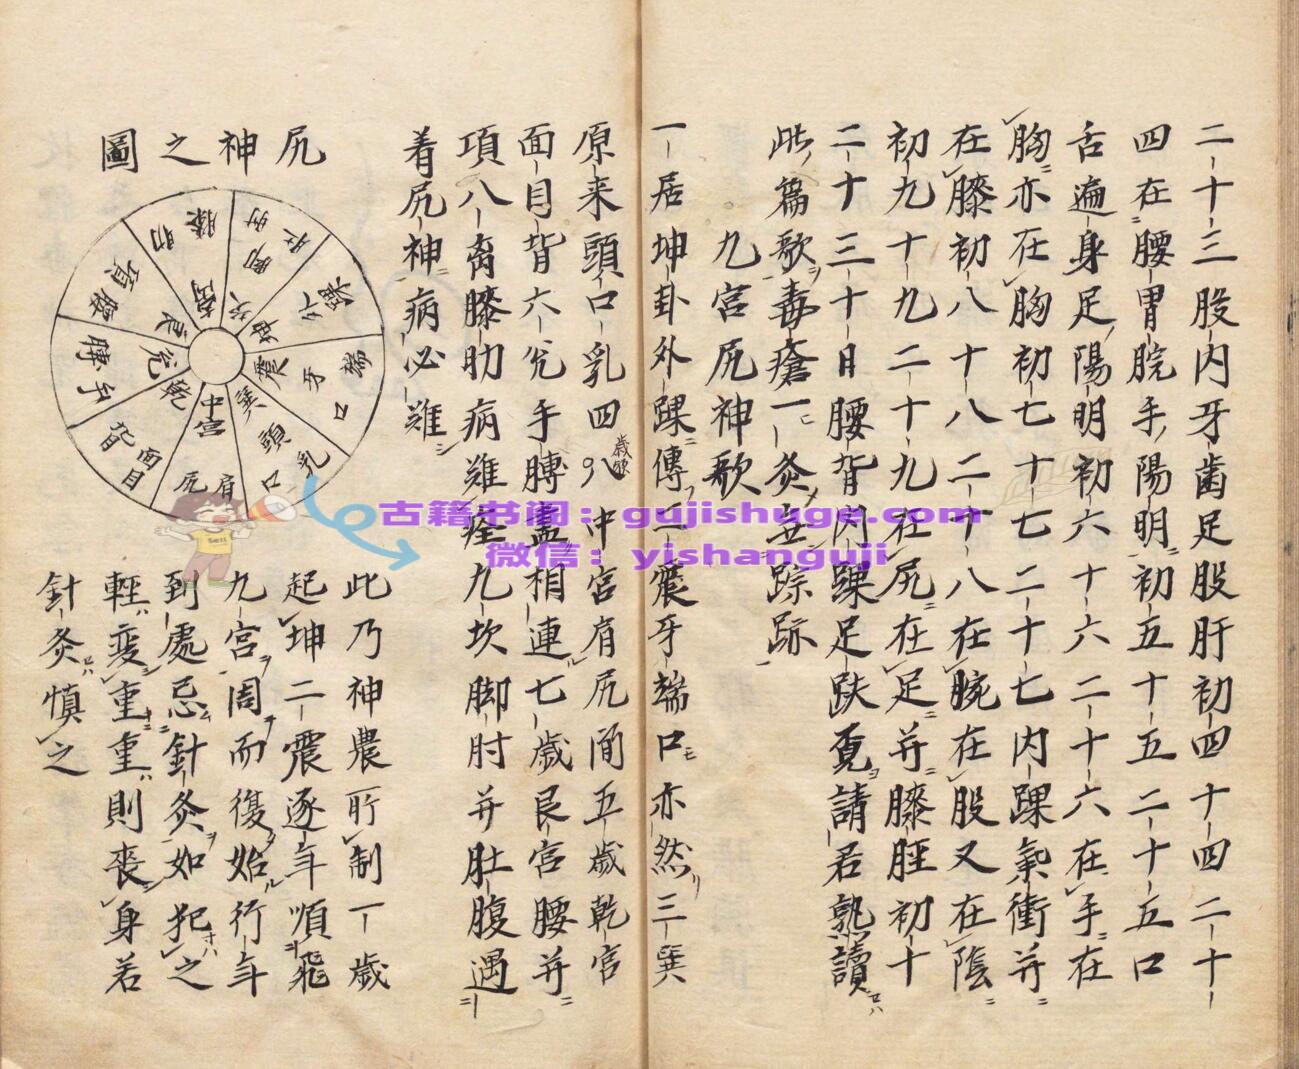 二十三股内牙歯足股肝初四十四二十
四在腰胃脘手陽明初五十五二十五口
舌遍身足陽明初六十六二十六在手在
胸亦在胸初七十七二十七内踝氣衝并
在膝初八十八二十八在腕在股又在陰
初九十九二十九在尻在足并膝脛初十
二十三十日腰背内踝足趺覓請君熟讀
此篇歌毒瘡一灸无踪跡
九宮尻神歌
一居坤卦外踝傳二震牙端口亦然三巽
原来頭口乳四歳 中宮肩尻間五歳乾宮
面目背六兊手膊盖相連七歳艮宮腰并
項八离膝肋病難痊九坎脚肘并肚腹遇
着尻神病必難
尻神之圖
坤 踝
震 牙 端 口
巽 頭 乳 口
中宮 肩 尻
乾 面目 背
兊 手 膊
艮 腰 項
离 膝 肋
坎 脚 肘 肚
此乃神農所制一歳
起坤二震逐年順飛
九宮周而復始行年
到處忌針灸如犯之
輕變重重則喪身若
針灸慎之
古籍书阁：gujishuge.com
微信：yishanguji